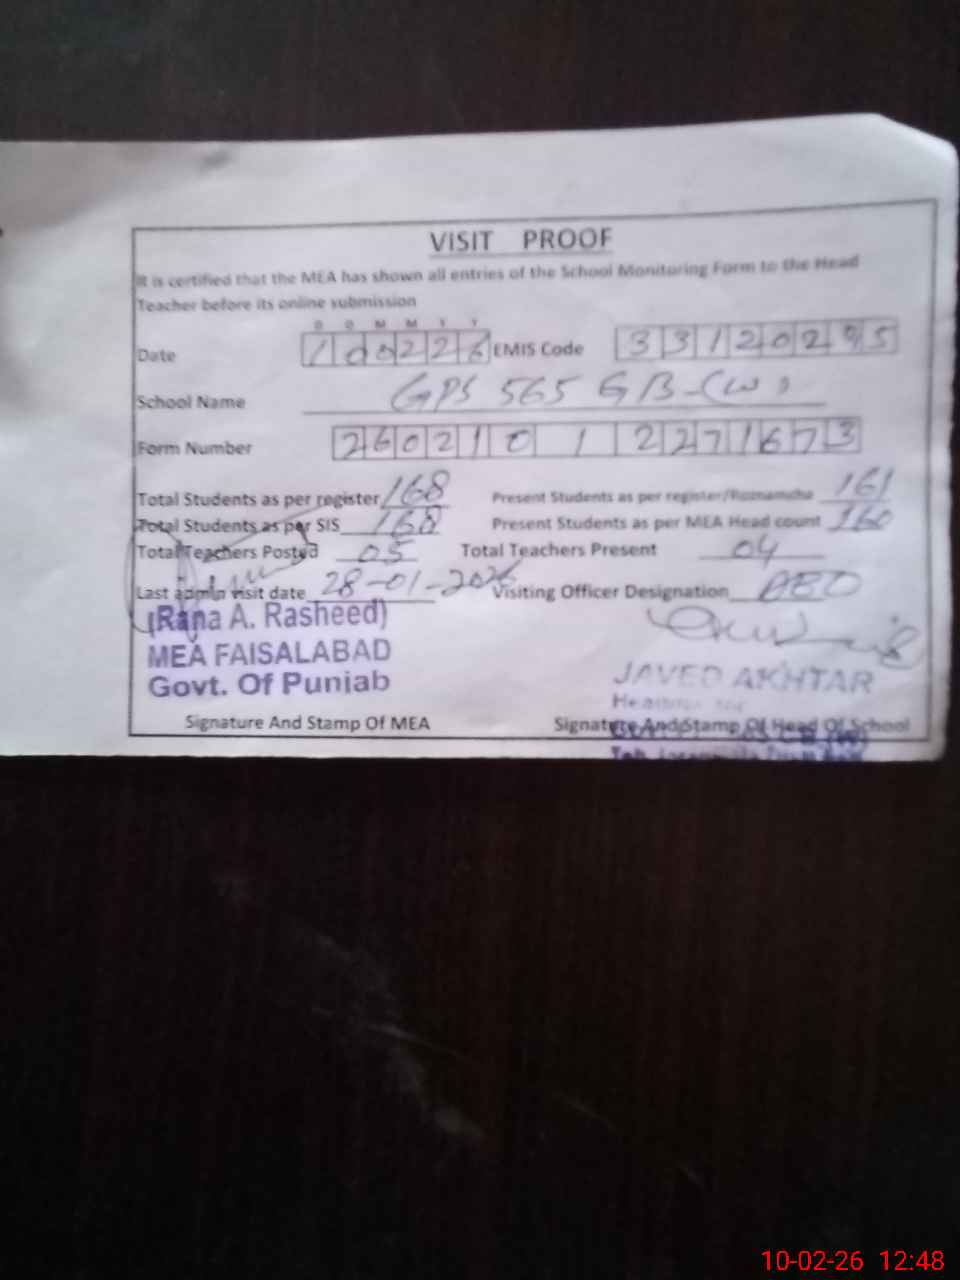 VISIT PROOF
It is certified that the MEA has shown all entries of the School Monitoring Form to the Head
Teacher before its online submission
D D M M Y Y
Date 100226 EMIS Code 33120295
School Name GPS 565 GB-(W)
Form Number 260210 1 2271673
Total Students as per register 168 Present Students as per register/Roznamcha 161
Total Students as per SIS 168 Present Students as per MEA Head count 160
Total Teachers Posted 05 Total Teachers Present 04
Last admin visit date 28-01-2026 Visiting Officer Designation AEO
(Rana A. Rasheed)
MEA FAISALABAD
Govt. Of Punjab
JAVED AKHTAR
Signature And Stamp Of MEA Signature And Stamp Of Head Of School
10-02-26 12:48